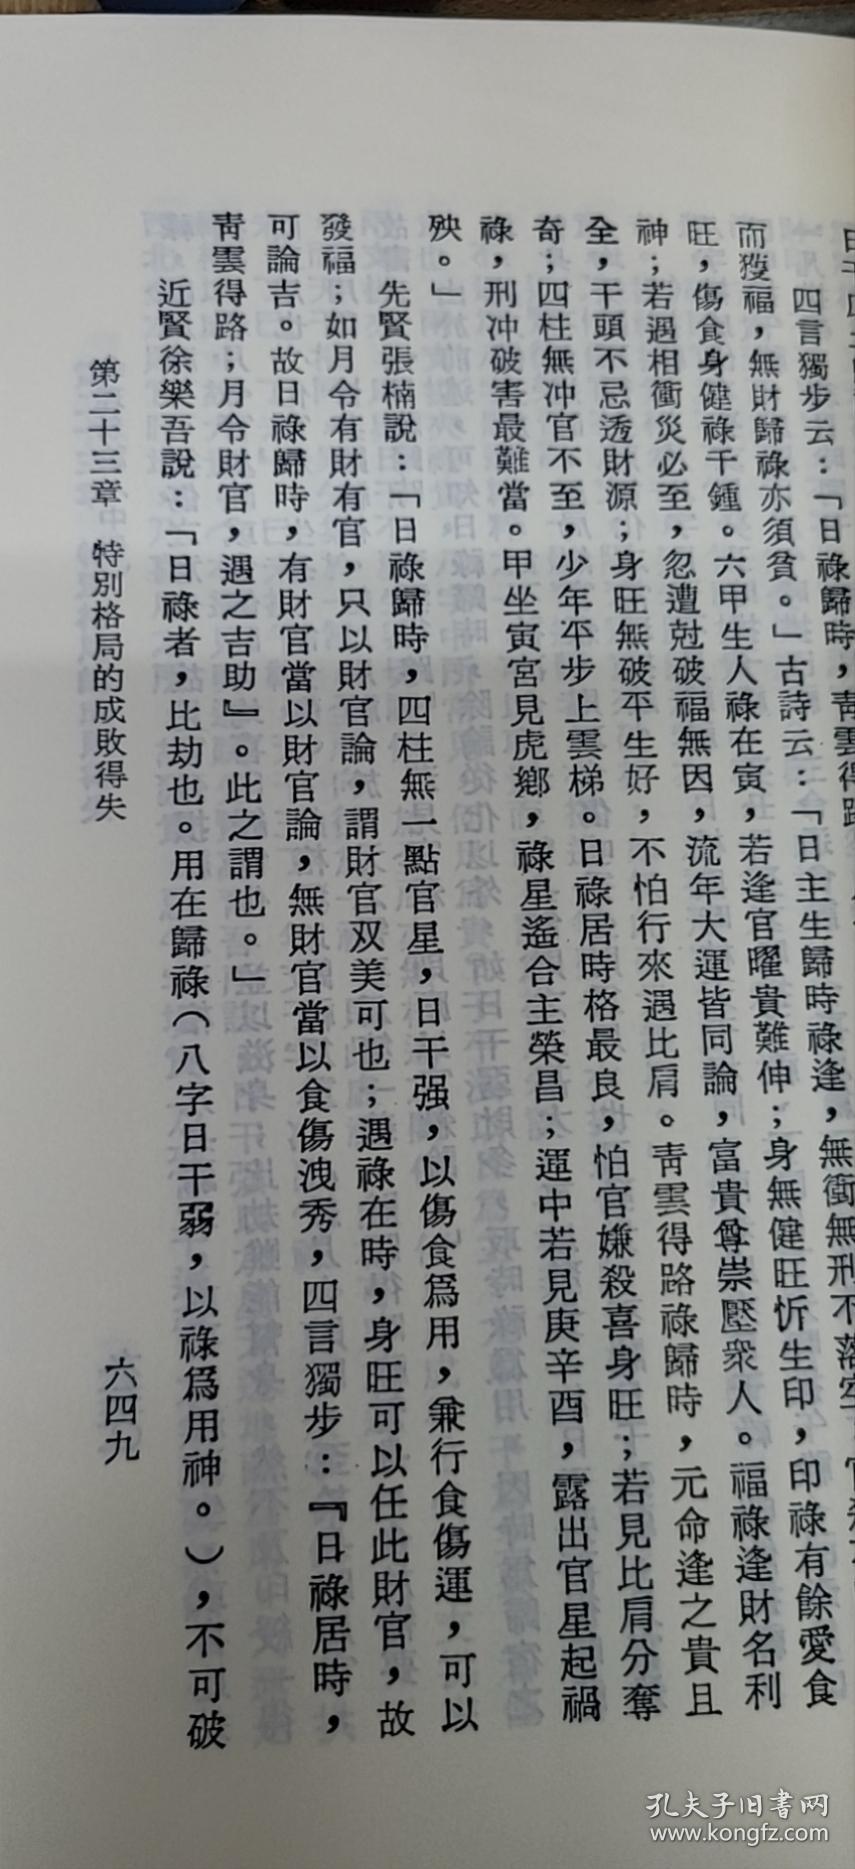 四言獨步云：「日祿歸時，青雲得路
而獲福，無財歸祿亦須貧。」古詩云：「日主生歸時祿逢，無衝無刑不落空，官
旺，傷食身健祿千鍾。六甲生人祿在寅，若逢官曜貴難伸；身無健旺忻生印，印祿有餘愛食
神；若遇相衝災必至，忽遭尅破福無因，流年大運皆同論，富貴尊崇壓衆人。福祿逢財名利
全，干頭不忌透財源；身旺無破平生好，不怕行來遇比肩。青雲得路祿歸時，元命逢之貴且
奇；四柱無冲官不至，少年平步上雲梯。日祿居時格最良，怕官嫌殺喜身旺；若見比肩分奪
祿，刑冲破害最難當。甲坐寅宮見虎鄉，祿星遙合主榮昌；運中若見庚辛酉，露出官星起禍
殃。」
先賢張楠說：「日祿歸時，四柱無一點官星，日干强，以傷食爲用，兼行食傷運，可以
發福；如月令有財有官，只以財官論，謂財官双美可也；遇祿在時，身旺可以任此財官，故
可論吉。故日祿歸時，有財官當以財官論，無財官當以食傷洩秀，四言獨步：『日祿居時，
青雲得路；月令財官，遇之吉助』。此之謂也。」
近賢徐樂吾說：「日祿者，比劫也。用在歸祿（八字日干弱，以祿爲用神。），不可破
第二十三章 特別格局的成敗得失
六四九
孔夫子旧書网
www.kongfz.com